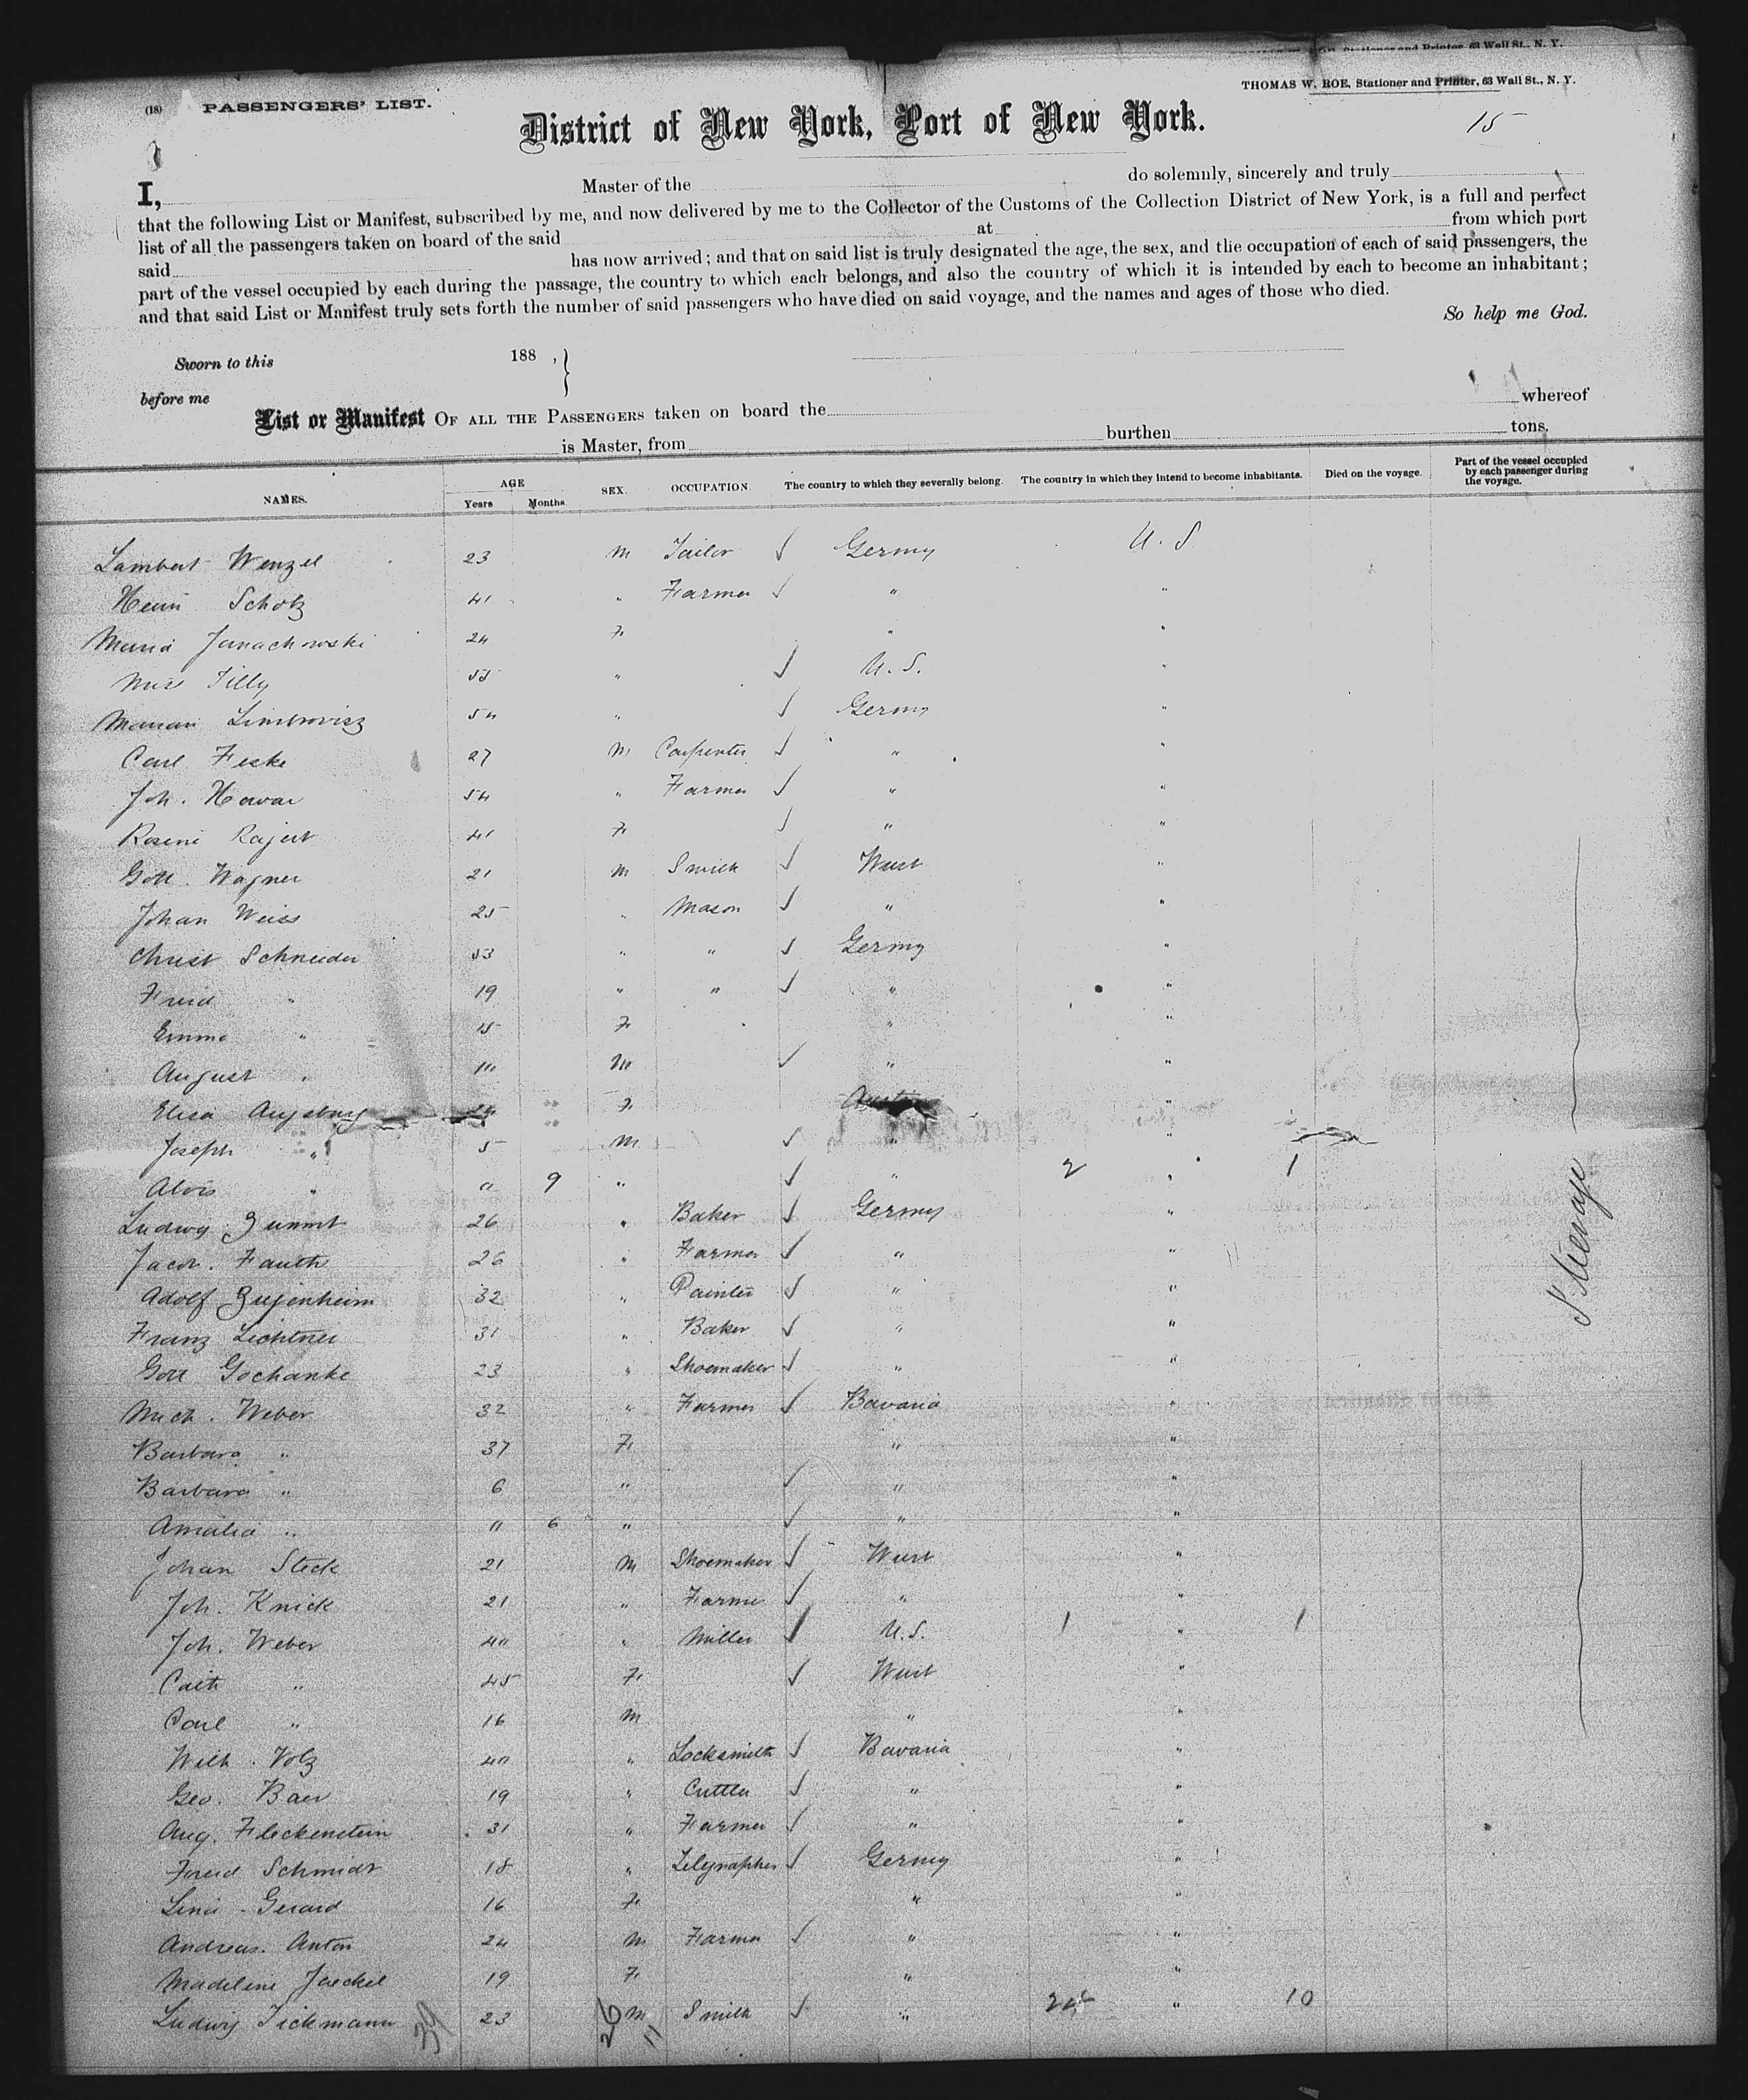 THOMAS W. ROE, Stationer and Printer, 63 Wall St., N. Y.
(18) PASSENGERS' LIST.
District of New York, Port of New York.
15
I, Master of the do solemnly, sincerely and truly
that the following List or Manifest, subscribed by me, and now delivered by me to the Collector of the Customs of the Collection District of New York, is a full and perfect
list of all the passengers taken on board of the said at from which port
said has now arrived; and that on said list is truly designated the age, the sex, and the occupation of each of said passengers, the
part of the vessel occupied by each during the passage, the country to which each belongs, and also the country of which it is intended by each to become an inhabitant;
and that said List or Manifest truly sets forth the number of said passengers who have died on said voyage, and the names and ages of those who died.
So help me God.
Sworn to this 188 , }
before me
List or Manifest OF ALL THE PASSENGERS taken on board the whereof
is Master, from burthen tons.
NAMES. AGE Years Months SEX. OCCUPATION. The country to which they severally belong. The country in which they intend to become inhabitants. Died on the voyage. Part of the vessel occupied by each passenger during the voyage.
Lambert Wenzel 23 M Tailor Germy U. S
Scholz 41 " Farmer " "
Maria Janachowski 24 F " "
Miss Tilly 55 " U. S. "
54 " Germy "
Carl Feske 27 M Carpenter " "
Joh. 54 " Farmer " "
41 F " "
Gott. Wagner 21 M Smith Wurt "
Johan Weiss 25 " Mason " "
Christ Schneider 53 " " Germy "
Fried " 19 " " " "
Emma " 15 F " "
August " M " "
Elisa Augsburg 24 F "
Joseph " 5 M " "
Alois " " 9 " " 2 " 1
Ludwig 26 " Baker Germy "
Jacob. Fauth 26 " Farmer " "
Adolf 32 " Painter " "
Franz Lichtner 31 " Baker " "
Gott Gochanke 23 " Shoemaker " "
Mich. Weber 32 " Farmer Bavaria "
Barbara " 37 F " "
Barbara " 6 " " "
Amalia " " 6 " " "
Johan Steck 21 M Shoemaker Wurt "
Joh. Knick 21 " Farmer " "
Joh. Weber 40 " Miller U.S. 1 " 1
Cath " 45 F Wurt "
Carl " 16 M " "
Wilh. Volz 40 " Locksmith Bavaria "
Geo. Baer 19 " Cuttler " "
Aug. Fleckenstein 31 " Farmer " "
Fried Schmidt 18 " Telegrapher Germy "
Lina Gerard 16 F " "
Andreas. Anton 24 M Farmer " "
Madeline Jaeckel 19 F " "
Ludwig Tickmann 23 M Smith " "  10
39 26 11
Steerage